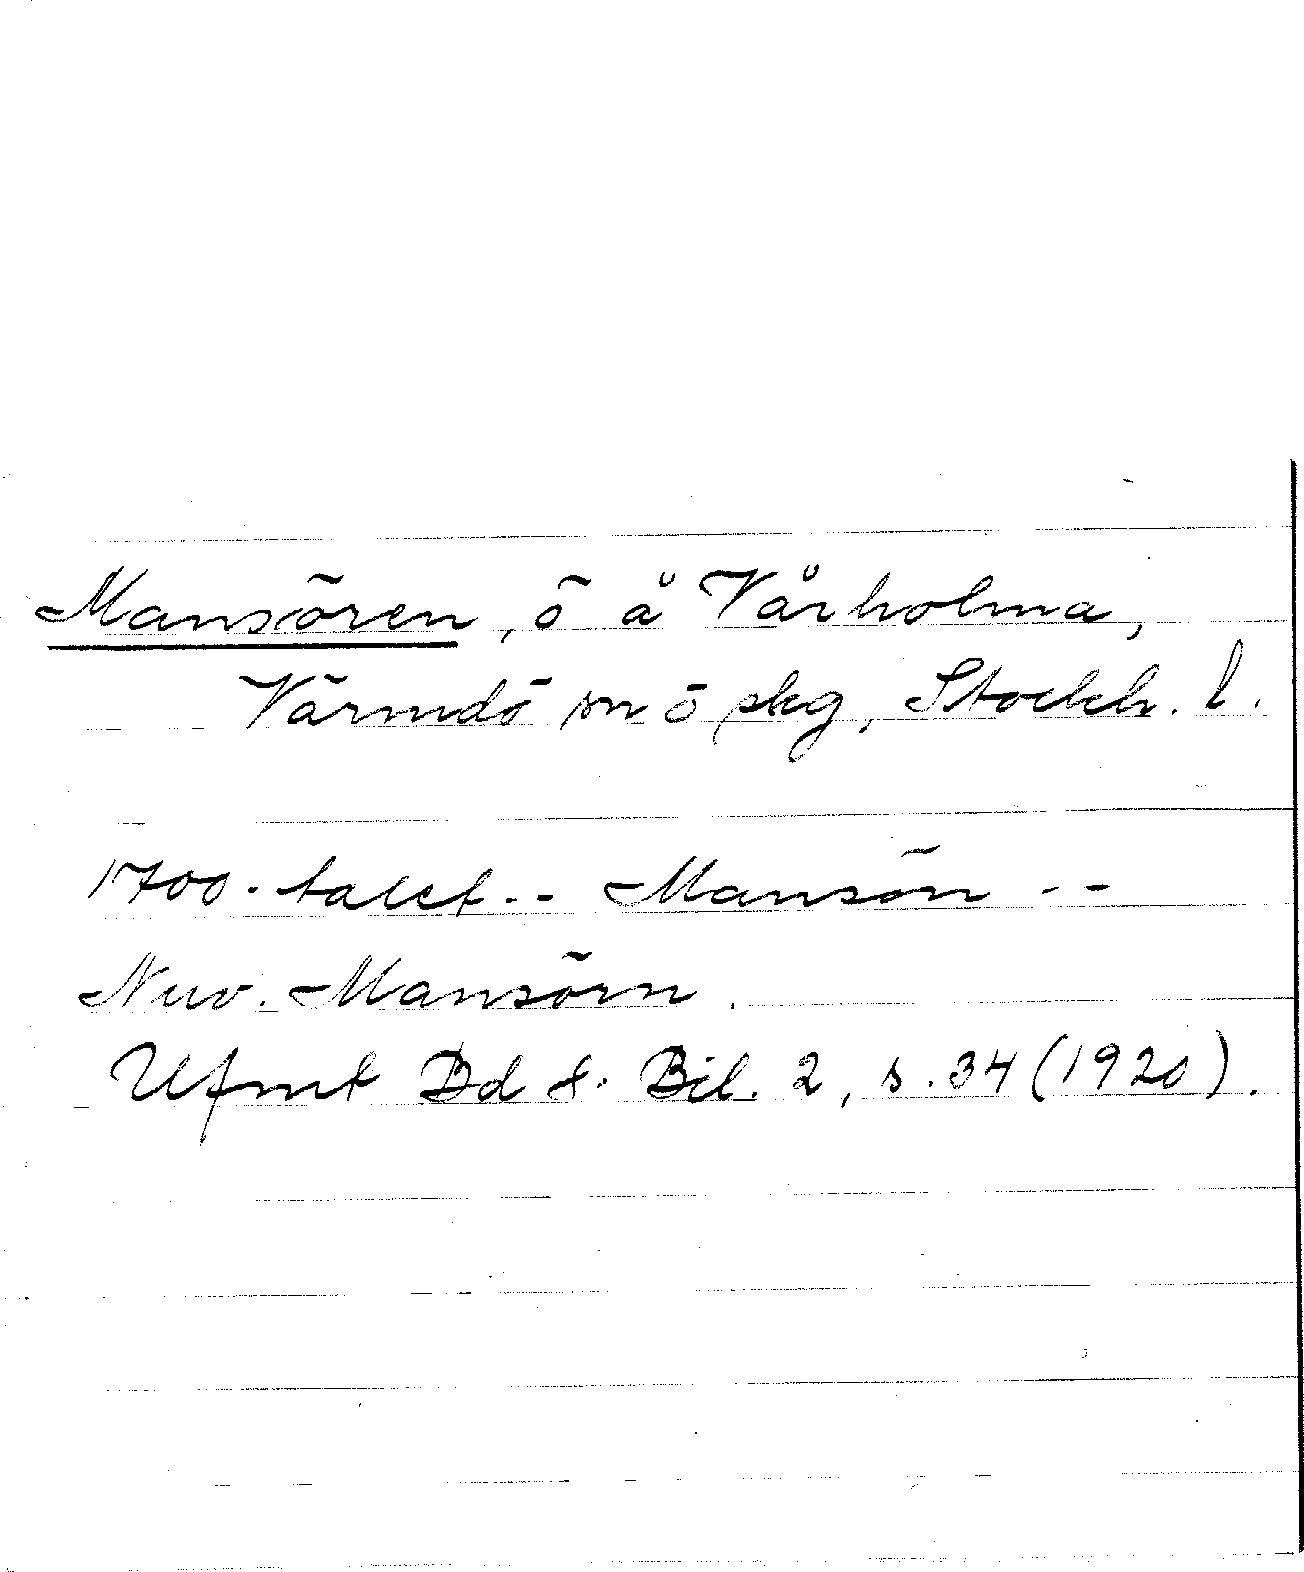 Mansören, ö å Vårholma,
Värmdö sn o skg, Stockh. l.
1700-talet -- Mansön --
Nuv. Mansörn.
Ufmt Bd 8. Bil. 2, s. 34 (1920).